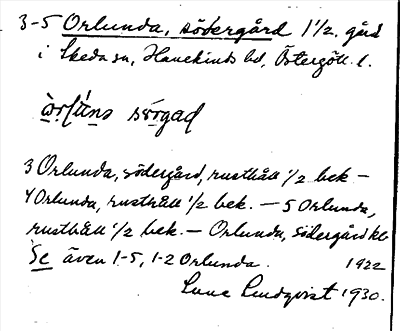 3-5 Orlunda, södergård 1 1/2. gård
i Skeda sn, Hanekinds hd, Östergötl. l.
sörgad
3 Orlunda, södergård, rusthåll 1/2 bek –
4 Orlunda, rusthåll 1/2 bek. – 5 Orlunda,
rusthåll 1/2 bek. – Orlunda, södergård kb
Se även 1-5, 1-2 Orlunda. 1922
Lindqvist 1930.